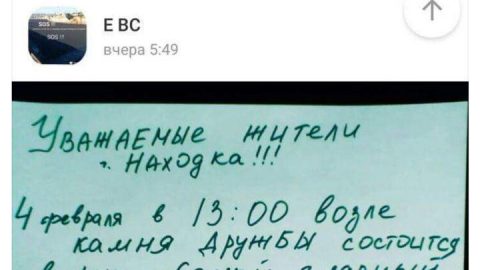 SOS !!!
SOS !!!
Е ВС
вчера 5:49
Уважаемые жители
г. Находка!!!
4 февраля в 13:00 возле
камня Дружбы состоится